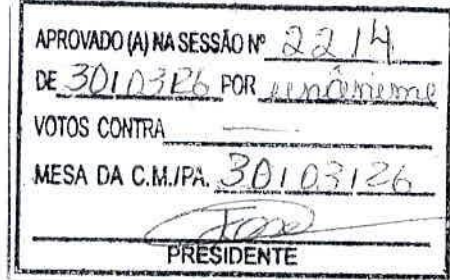 APROVADO (A) NA SESSÃO Nº 2214
DE 30/03/26 POR unânime
VOTOS CONTRA
MESA DA C.M./PA. 30/03/26
PRESIDENTE